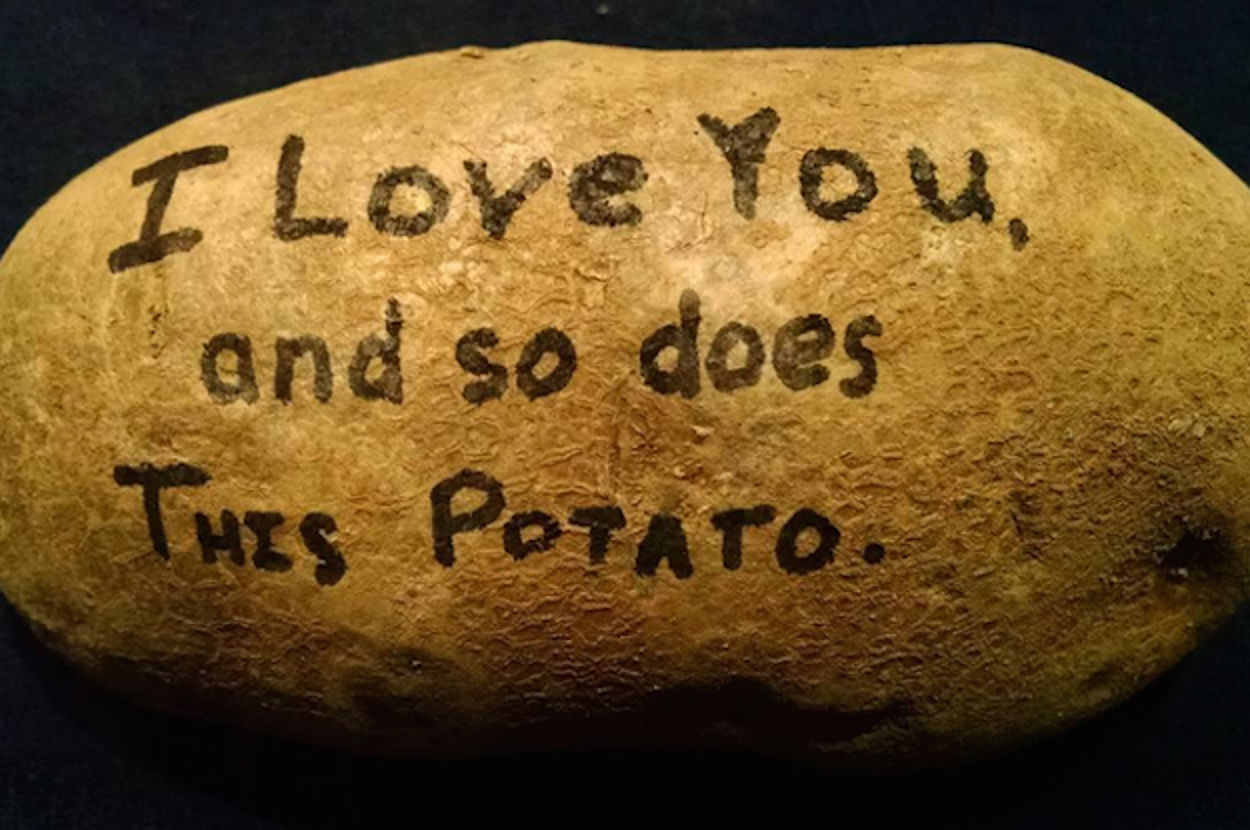 I Love You,
and so does
THIS POTATO.